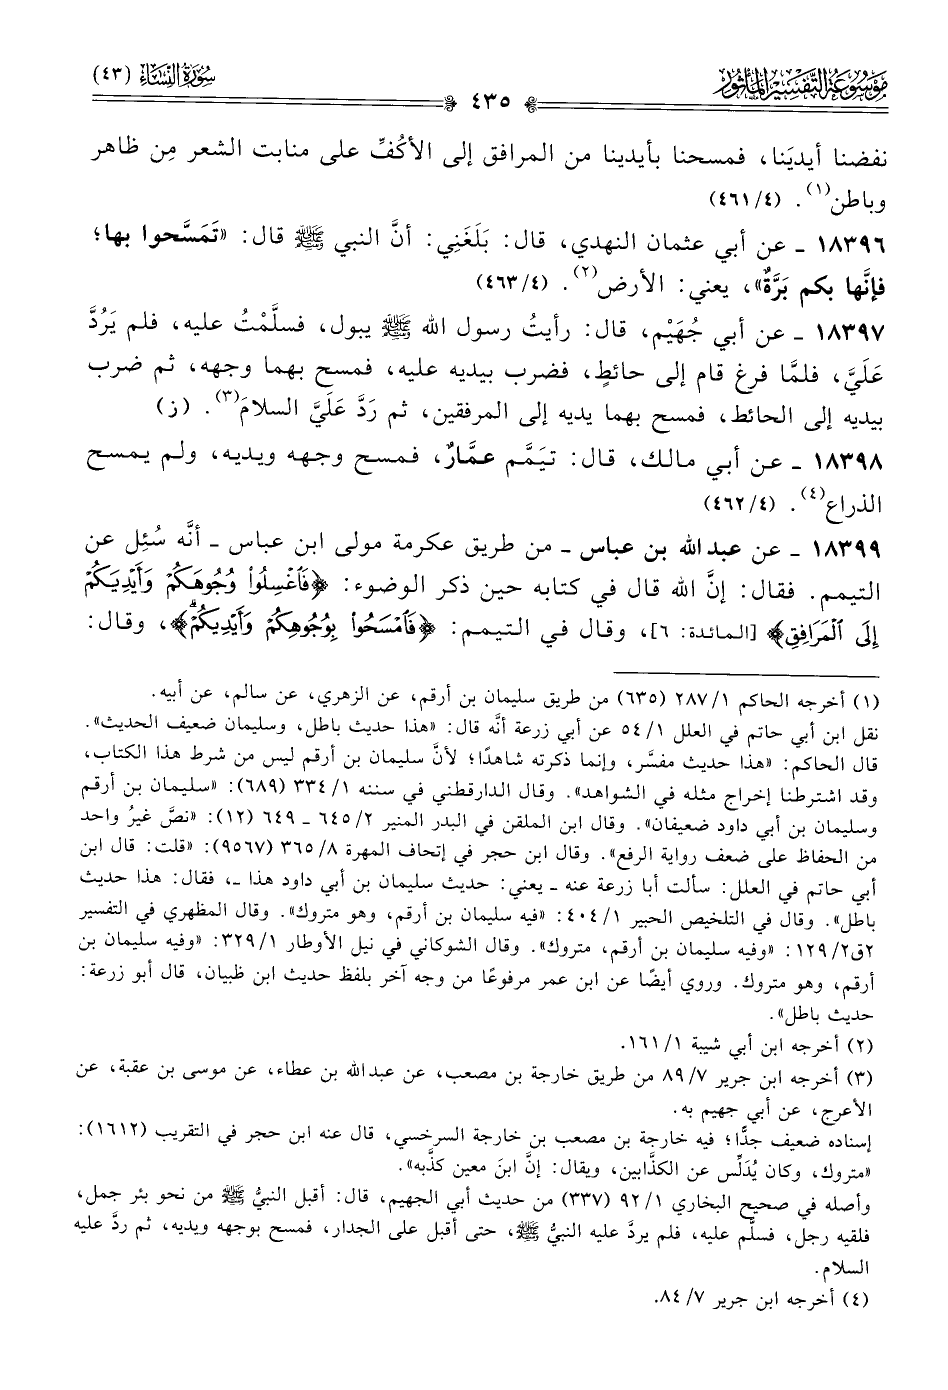 موسوعة التفسير المأثور
سورة النساء (٤٣)
٤٣٥
نفضنا أيديَنا، فمسحنا بأيدينا من المرافق إلى الأكُفِّ على منابت الشعر مِن ظاهر
وباطن(١). (٤٦١/٤)
١٨٣٩٦ ـ عن أبي عثمان النهدي، قال: بَلَغَنِي: أنَّ النبي ﷺ قال: «تَمَسَّحوا بها؛
فإنَّها بكم بَرَّةٌ»، يعني: الأرض(٢). (٤٦٣/٤)
١٨٣٩٧ ـ عن أبي جُهَيْم، قال: رأيتُ رسول الله ﷺ يبول، فسلَّمْتُ عليه، فلم يَرُدَّ
عَلَيَّ، فلمَّا فرغ قام إلى حائطٍ، فضرب بيديه عليه، فمسح بهما وجهه، ثم ضرب
بيديه إلى الحائط، فمسح بهما يديه إلى المرفقين، ثم رَدَّ عَلَيَّ السلامَ(٣). (ز)
١٨٣٩٨ ـ عن أبي مالك، قال: تيَمَّم عمَّارٌ، فمسح وجهه ويديه، ولم يمسح
الذراع(٤). (٤٦٢/٤)
١٨٣٩٩ ـ عن عبد الله بن عباس ـ من طريق عكرمة مولى ابن عباس ـ أنَّه سُئِل عن
التيمم. فقال: إنَّ الله قال في كتابه حين ذكر الوضوء: ﴿فَٱغْسِلُوا۟ وُجُوهَكُمْ وَأَيْدِيَكُمْ
إِلَى ٱلْمَرَافِقِ﴾ [المائدة: ٦]، وقال في التيمم: ﴿فَٱمْسَحُوا۟ بِوُجُوهِكُمْ وَأَيْدِيكُمْ﴾، وقال:
(١) أخرجه الحاكم ٢٨٧/١ (٦٣٥) من طريق سليمان بن أرقم، عن الزهري، عن سالم، عن أبيه.
نقل ابن أبي حاتم في العلل ٥٤/١ عن أبي زرعة أنَّه قال: «هذا حديث باطل، وسليمان ضعيف الحديث».
قال الحاكم: «هذا حديث مفسَّر، وإنما ذكرته شاهدًا؛ لأنَّ سليمان بن أرقم ليس من شرط هذا الكتاب،
وقد اشترطنا إخراج مثله في الشواهد». وقال الدارقطني في سننه ٣٣٤/١ (٦٨٩): «سليمان بن أرقم
وسليمان بن أبي داود ضعيفان». وقال ابن الملقن في البدر المنير ٦٤٥/٢ ـ ٦٤٩ (١٢): «نصَّ غيرُ واحد
من الحفاظ على ضعف رواية الرفع». وقال ابن حجر في إتحاف المهرة ٣٦٥/٨ (٩٥٦٧): «قلت: قال ابن
أبي حاتم في العلل: سألت أبا زرعة عنه ـ يعني: حديث سليمان بن أبي داود هذا ـ، فقال: هذا حديث
باطل». وقال في التلخيص الحبير ٤٠٤/١: «فيه سليمان بن أرقم، وهو متروك». وقال المظهري في التفسير
٢ق١٢٩/٢: «وفيه سليمان بن أرقم، متروك». وقال الشوكاني في نيل الأوطار ٣٢٩/١: «وفيه سليمان بن
أرقم، وهو متروك. وروي أيضًا عن ابن عمر مرفوعًا من وجه آخر بلفظ حديث ابن ظبيان، قال أبو زرعة:
حديث باطل».
(٢) أخرجه ابن أبي شيبة ١٦١/١.
(٣) أخرجه ابن جرير ٨٩/٧ من طريق خارجة بن مصعب، عن عبد الله بن عطاء، عن موسى بن عقبة، عن
الأعرج، عن أبي جهيم به.
إسناده ضعيف جدًّا؛ فيه خارجة بن مصعب بن خارجة السرخسي، قال عنه ابن حجر في التقريب (١٦١٢):
«متروك، وكان يُدَلِّس عن الكذَّابين، ويقال: إنَّ ابنَ معين كذَّبه».
وأصله في صحيح البخاري ٩٢/١ (٣٣٧) من حديث أبي الجهيم، قال: أقبل النبيُّ ﷺ من نحو بئر جمل،
فلقيه رجل، فسلَّم عليه، فلم يردَّ عليه النبيُّ ﷺ، حتى أقبل على الجدار، فمسح بوجهه ويديه، ثم ردَّ عليه
السلام.
(٤) أخرجه ابن جرير ٨٤/٧.